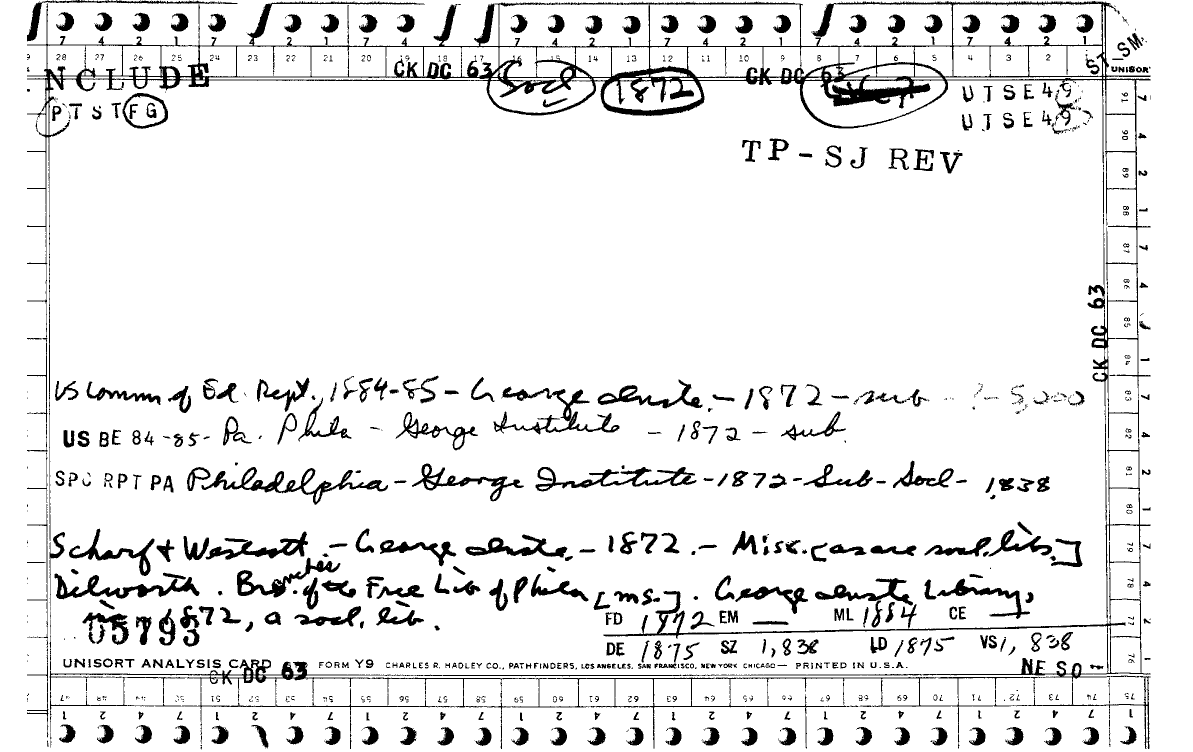 7 4 2 1 7 4 2 1 7 4 2 1 7 4 2 1 7 4 2 1 7 4 2 1 7 4 2 1
28 27 26 25 24 23 22 21 20 19 18 17 16 15 14 13 12 11 10 9 8 7 6 5 4 3 2 1
ST SM
UNISORT
NCLUDE CK DC 63 Socl 1872 CK DC 63
PTSTFG UTSE49
UTSE49
TP-SJ REV
CK DC 63
US Comm of Ed. Rept., 1884-85 - George Inste. - 1872 - sub - ? - 5,000
US BE 84-85 - Pa. Phila - George Institute - 1872 - sub.
SPC RPT PA Philadelphia - George Institute - 1872 - Sub - Socl - 1,838
Scharf & Westcott. - George Inste. - 1872. - Misc. [as are socl. libs.]
Dilworth. Branches of the Free Lib of Phila [ms.]. George Inste Library,
1872, a socl. lib.
05793
FD 1872 EM — ML 1884 CE —
DE 1875 SZ 1,838 LD 1875 VS 1,838
UNISORT ANALYSIS CARD FORM Y9 CHARLES R. HADLEY CO., PATHFINDERS, LOS ANGELES, SAN FRANCISCO, NEW YORK CHICAGO — PRINTED IN U.S.A.
CK DC 63 NE SO -
91 90 89 88 87 86 85 84 83 82 81 80 79 78 77 76
7 4 2 1 7 4 2 1 7 4 2 1 7 4 2 1
47 48 49 50 51 52 53 54 55 56 57 58 59 60 61 62 63 64 65 66 67 68 69 70 71 72 73 74 75
1 2 4 7 1 2 4 7 1 2 4 7 1 2 4 7 1 2 4 7 1 2 4 7 1 2 4 7 1